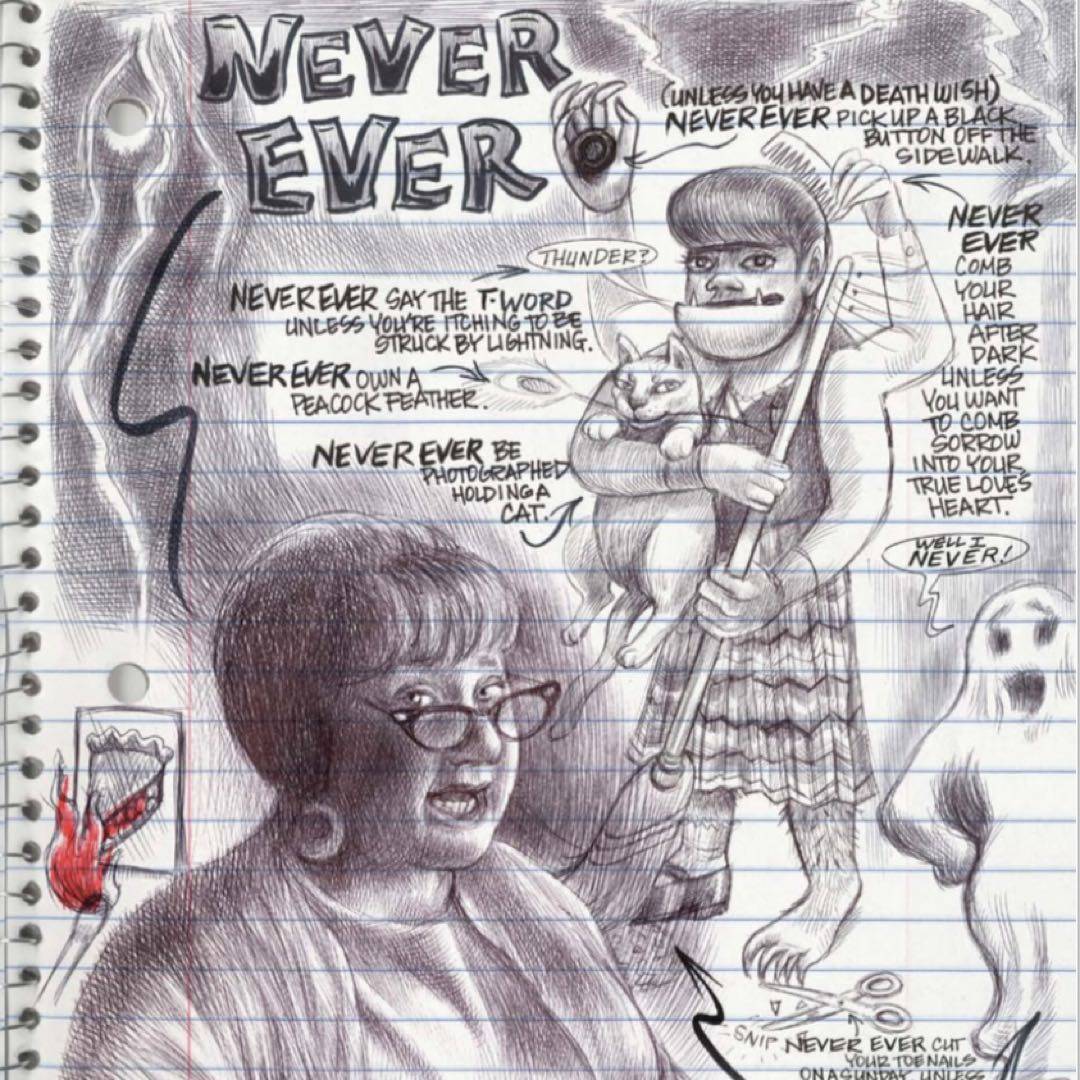 NEVER
EVER
(UNLESS YOU HAVE A DEATH WISH)
NEVER EVER PICK UP A BLACK
BUTTON OFF THE
SIDEWALK.
THUNDER?
NEVER EVER SAY THE T-WORD
UNLESS YOU'RE ITCHING TO BE
STRUCK BY LIGHTNING.
NEVER EVER OWN A
PEACOCK FEATHER.
NEVER EVER BE
PHOTOGRAPHED
HOLDING A
CAT.
NEVER
EVER
COMB
YOUR
HAIR
AFTER
DARK
UNLESS
YOU WANT
TO COMB
SORROW
INTO YOUR
TRUE LOVE'S
HEART.
WELL I
NEVER!
SNIP
NEVER EVER CUT
YOUR TOENAILS
ON A SUNDAY UNLESS